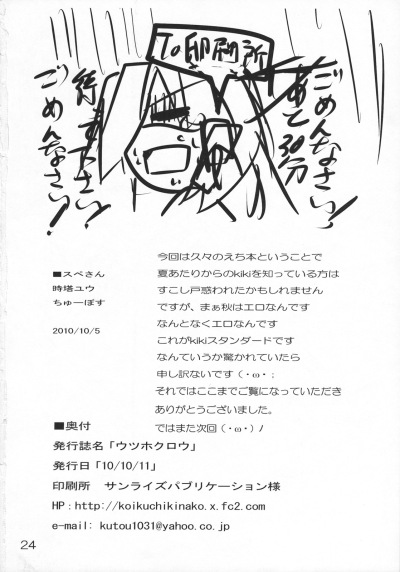 To 印刷所
ごめんなさい!
あと30分
待て下さい!
ごめんなさい!
今回は久々のえち本ということで
夏あたりからのkikiを知っている方は
すこし戸惑われたかもしれません
ですが、まぁ秋はエロなんです
なんとなくエロなんです
これがkikiスタンダードです
なんていうか驚かれていたら
申し訳ないです（・ω・；
それではここまでご覧になっていただき
ありがとうございました。
ではまた次回（・ω・）ﾉ
■スペさん
時塔ユウ
ちゅーぼす
2010/10/5
■奥付
発行誌名「ウツホクロウ」
発行日「10/10/11」
印刷所　サンライズパブリケーション様
HP：http://koikuchikinako.x.fc2.com
e-mail: kutou1031@yahoo.co.jp
24